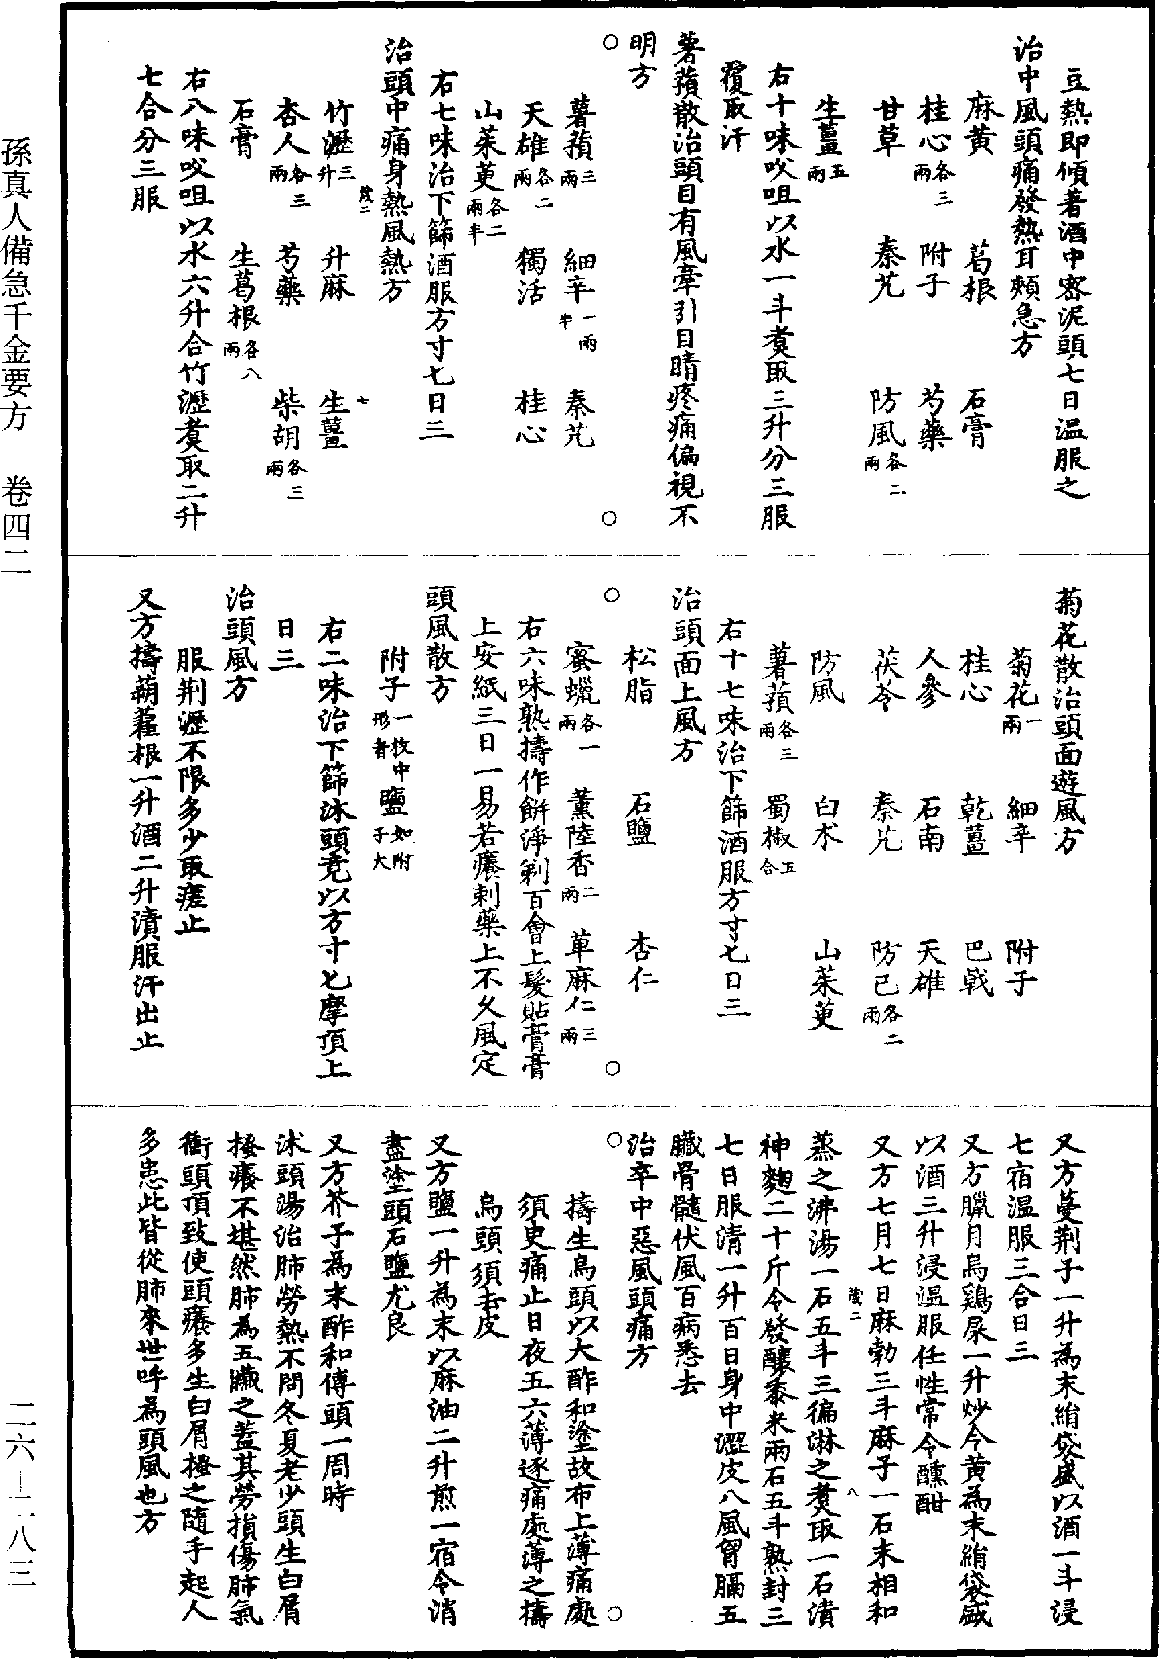 豆熱即傾著酒中密泥頭七日温服之
治中風頭痛發熱耳頰急方
麻黃 葛根 石膏
桂心各三兩 附子 芍藥
甘草 秦艽 防風各二兩
生薑五兩
右十味㕮咀以水一斗煑取三升分三服
覆取汗
薯蕷散治頭目有風牽引目睛疼痛偏視不
明方
薯蕷三兩 細辛一兩半 秦艽
天雄各二兩 獨活 桂心
山茱萸各二兩半
右七味治下篩酒服方寸匕日三
治頭中痛身熱風熱方
竹瀝三升 升麻 生薑
杏人各三兩 芍藥 柴胡各三兩
石膏 生葛根各八兩
右八味㕮咀以水六升合竹瀝煑取二升
七合分三服
菊花散治頭面遊風方
菊花一兩 細辛 附子
桂心 乾薑 巴戟
人參 石南 天雄
茯苓 秦艽 防己各二兩
防風 白朮 山茱萸
薯蕷各三兩 蜀椒五合
右十七味治下篩酒服方寸匕日三
治頭面上風方
松脂 石鹽 杏仁
蜜蠟各一兩 薰陸香二兩 萆麻仁三兩
右六味熟擣作餅淨剃百會上髮貼膏膏
上安紙三日一易若癢剌藥上不久風定
頭風散方
附子一枚中形者 鹽如附子大
右二味治下篩沐頭竟以方寸匕摩頂上
日三
治頭風方
服荆瀝不限多少取瘥止
又方擣蒴藋根一升酒二升漬服汗出止
又方蔓荆子一升為末絹袋盛以酒一斗浸
七宿温服三合日三
又方臘月烏鷄屎一升炒令黄為末絹袋盛
以酒三升浸温服任性常令醺酣
又方七月七日麻勃三斗麻子一石末相和
蒸之沸湯一石五斗三徧淋之煑取一石漬
神麴二十斤令發釀黍米兩石五斗熟封三
七日服清一升百日身中澀皮八風胷膈五
臟骨髓伏風百病悉去
治卒中惡風頭痛方
擣生烏頭以大酢和塗故布上薄痛處
須臾痛止日夜五六薄逐痛處薄之擣
烏頭須去皮
又方鹽一升為末以麻油二升煎一宿令消
盡塗頭石鹽尤良
又方芥子為末酢和傅頭一周時
沐頭湯治肺勞熱不問冬夏老少頭生白屑
搔癢不堪然肺為五臟之蓋其勞損傷肺氣
衝頭頂致使頭癢多生白屑搔之隨手起人
多患此皆從肺來世呼為頭風也方
孫真人備急千金要方 卷四二
二六—一八三